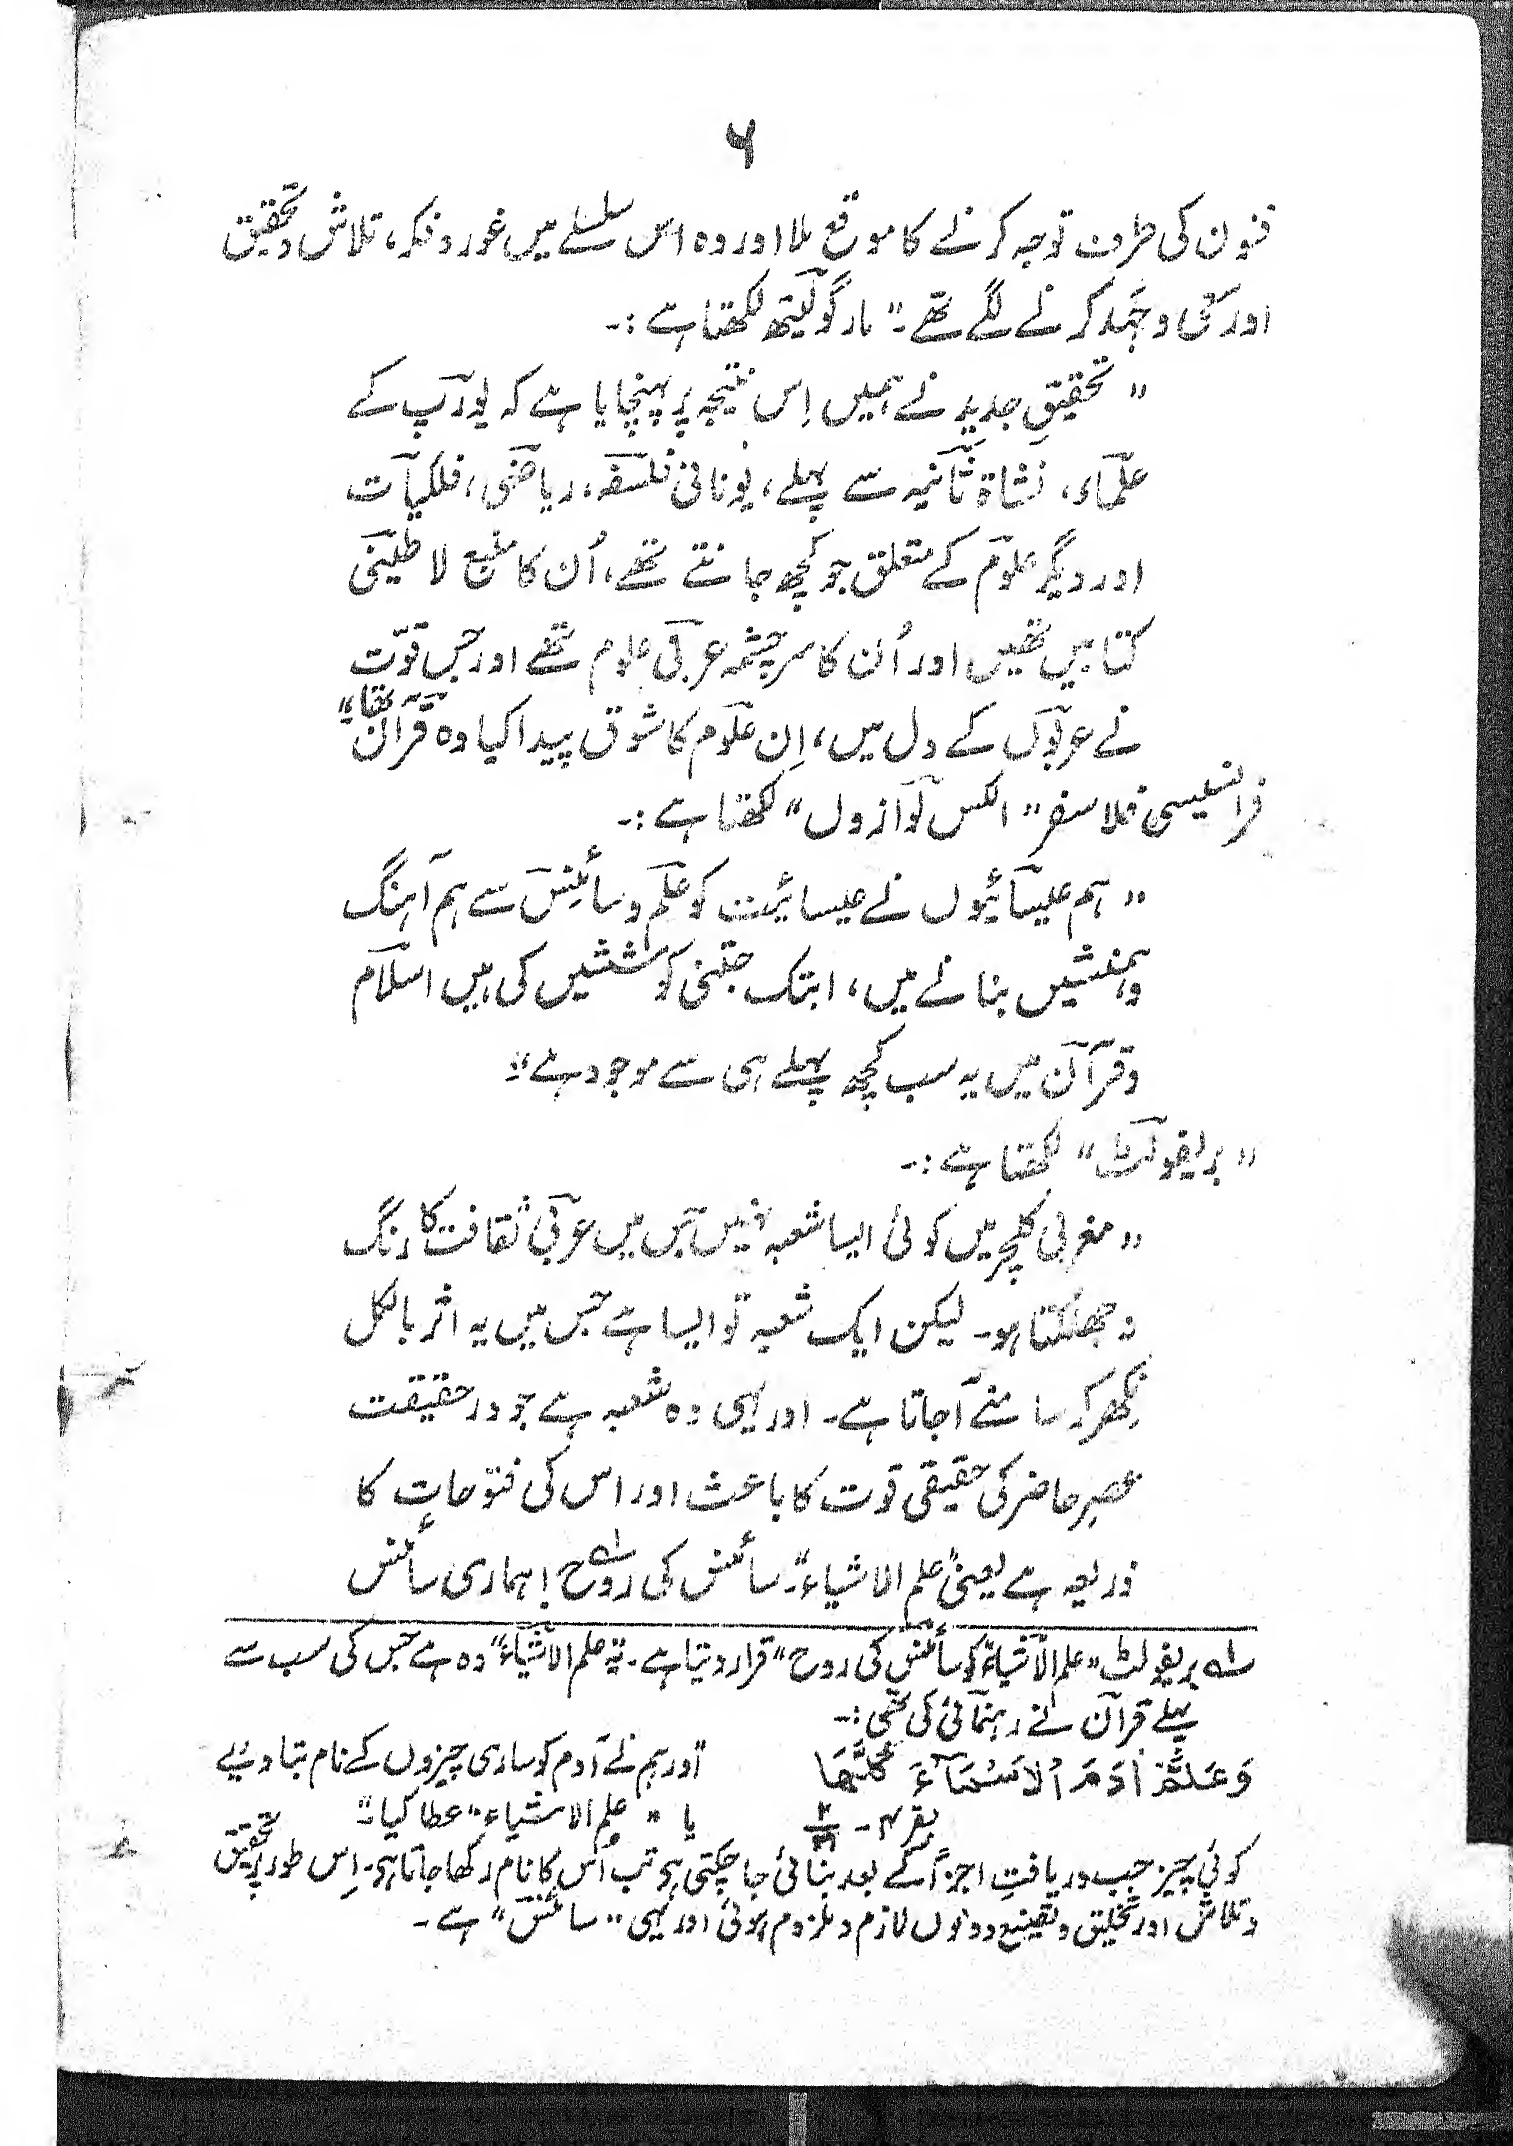 ۶
فنون کی طرف توجہ کرنے کا موقع ملا اور وہ اس سلسلے میں غور و فکر، تلاش و تحقیق
اور سعی و جہد کرنے لگے تھے۔" مارگولیتھ لکھتا ہے :-
" تحقیقِ جدید نے ہمیں اِس نتیجہ پر پہنچایا ہے کہ یورپ کے
علماء، نشاۃ ثانیہ سے پہلے، یونانی فلسفہ، ریاضی، فلکیات
اور دیگر علوم کے متعلق جو کچھ جانتے تھے، اُن کا منبع لاطینی
کتابیں تھیں اور اُن کا سرچشمہ عربی علوم تھے اور جس قوّت
نے عربوں کے دل میں، اِن علوم کا شوق پیدا کیا وہ قرآن تھا۔"
فرانسیسی فلاسفر " الکس لوازول" لکھتا ہے :-
" ہم عیسائیوں نے عیسائیت کو علم و سائنس سے ہم آہنگ
و ہمنشیں بنانے میں، ابتک جتنی کوششیں کی ہیں اسلام
و قرآن میں یہ سب کچھ پہلے ہی سے موجود ہے"
" بریفولٹ" لکھتا ہے :-
" مغربی کلچر میں کوئی ایسا شعبہ نہیں جس میں عربی ثقافت کا رنگ
نہ جھلکتا ہو۔ لیکن ایک شعبہ تو ایسا ہے جس میں یہ اثر بالکل
نکھر کر سامنے آجاتا ہے۔ اور یہی وہ شعبہ ہے جو در حقیقت
عصرِ حاضر کی حقیقی قوت کا باعث اور اس کی فتوحات کا
ذریعہ ہے یعنی "علم الاشیاء"۔ سائنس کی روح! ہماری سائنس
لے بریفولٹ "علم الاشیاء" کو سائنس کی روح" قرار دیتا ہے۔ یہ "علم الاشیاء" وہ ہے جس کی سب سے
پہلے قرآن نے رہنمائی کی تھی :-
وَعَلَّمَ اٰدَمَ الْاَسْمَآءَ کُلَّهَا "اور ہم نے آدم کو ساری چیزوں کے نام بتا دیے
بقرہ - ۲/۳۱ یا " علم الاشیاء" عطا کیا"
کوئی چیز جب دریافتِ اجزاء کے بعد بنائی جا چکتی ہو تب اُس کا نام رکھا جاتا ہو۔ اِس طور پر تحقیق
و تلاش اور تخلیق و تصنیع دونوں لازم و ملزوم ہوئی اور یہی " سائنس" ہے۔